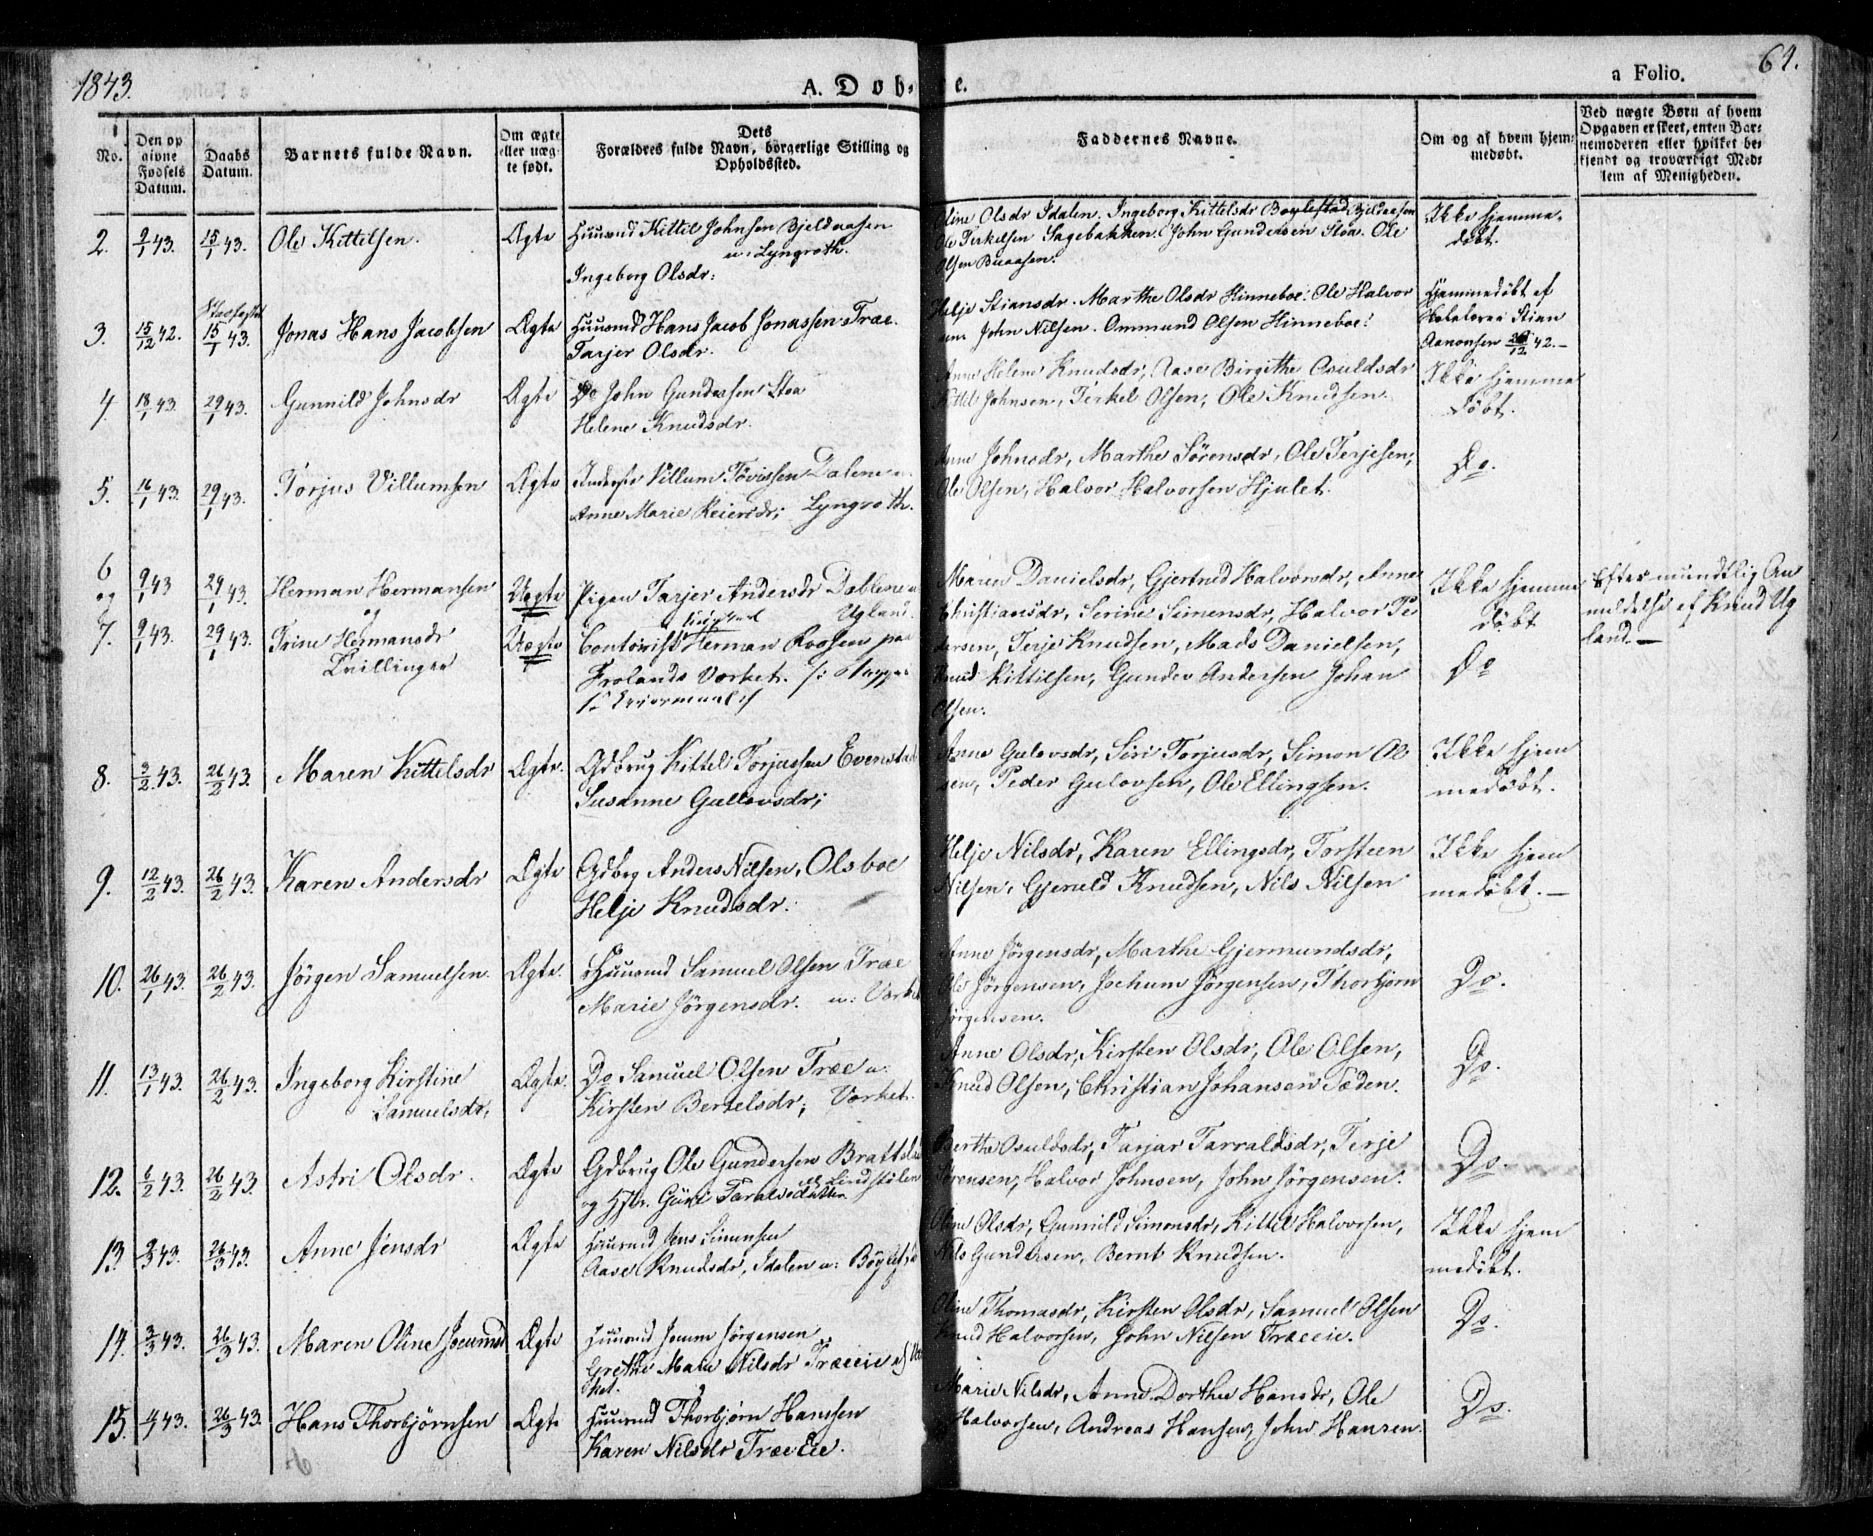 1843.
A. Döb-
e.
a Folio.
64.
No.
Den opgivne Födsels Datum.
Daabs Datum.
Barnets fulde Navn.
Om ægte eller uægte født.
Dets Forældres fulde Navn, borgerlige Stilling og Opholdssted.
Faddernes Navne.
Om og af hvem hjemmedøbt.
Ved uægte Børn af hvem Opgaven er skeet, enten Barnemoderen eller hvilket bekjendt og troværdigt Medlem af Menigheden.
2. 9/1 43. 15/1 43. Ole Kittelsen. Ægte Huusmd Kittel Johnsen Bjeldaasen
u: Lyngroth.
Ingeborg Olsdr:
Oline Olsdr Idalen. Ingeborg Kittelsdr Bøylestad Bjeldaasen
Ole Terkelsen Sagebakken. John Gundersen Stoa. Ole
Olsen Buaasen.
Ikke hjemme-
døbt.
3. 15/12 42. 15/1 43. Jonas Hans Jacobsen Ægte Huusmd Hans Jacob Jonassen Træe.
Tarjer Olsdr.
Helje Stiansdr. Marthe Olsdr Hinneboe. Ole Halvor
sen John Nilsen. Ommund Olsen Hinneboe.
Hjemmedøbt af
Stian
Aanonsen 42.
4. 18/1 43. 29/1 43. Gunnild Johnsdr Ægte Do John Gundersen Stoa
Helene Knudsdr.
Anne Helene Knudsdr, Aase Birgithe Osuldsdr
Kittel Johnsen, Terkel Olsen, Ole Knudsen.
Ikke hjemme
døbt.
5. 16/1 43. 29/1 43. Torjus Villumsen Ægte Inderste Villum Tovissen Dalene u.
Anne Marie Reiersdr; Lyngroth.
Anne Johnsdr, Marthe Sørensdr, Ole Terjesen,
Ole Olsen, Halvor Halvorsen Hjulet.
Do.
6 og 7. 9/1 43 29/1 43. Herman Hermansen Uægte Pigen Tarjer Andersdr Dablene u
og Ugland.
9/1 43. 29/1 43. Trine Hermansdr Uægte Contoirist Herman Roosen paa
Tvillinger Frolands Værket.
Maren Danielsdr, Gjertrud Halvorsdr, Anne
Christiansdr, Serine Simensdr, Halvor Pe
dersen, Terje Knudsen, Mads Danielsen,
Knud Kittilsen, Gunder Andersen Johan
Olsen.
Ikke hjemme
døbt
Do
Efter mundtlig An
meldelse af Knud Ug
land.
8. 3/2 43. 26/2 43. Maren Kittelsdr Ægte. Gdbrug Kittel Torjussen Evenstad
Susanne Gullovsdr;
Anne Gulovsdr, Siri Torjusdr, Simon Ol
sen, Peder Gulovsen, Ole Ellingsen.
Ikke hjem
medøbt.
9. 12/2 43. 26/2 43. Karen Andersdr Ægte Gdbrg Anders Nilsen, Olsboe
Helje Knudsdr.
Helje Nilsdr, Karen Ellingsdr, Torsteen
Nilsen, Gjeruld Knudsen, Nils Nilsen
Ikke hjem
medøbt.
10. 26/1 43. 26/2 43. Jörgen Samuelsen. Ægte. Huusmd Samuel Olsen Træe
Marie Jörgensdr. u: Værket
Anne Jörgensdr, Marthe Gjermundsdr,
Ole Jörgensen, Jochum Jörgensen, Thorbjørn
Jörgensen.
Do.
11. 13/1 43. 26/2 43. Ingeborg Kirstine
Samuelsdr, Ægte. Do Samuel Olsen Træe u.
Kirsten Bertelsdr; Værket.
Anne Olsdr, Kirsten Olsdr, Ole Olsen,
Knud Olsen, Christian Johansen Tæden.
Do.
12. 6/2 43. 26/2 43. Astri Olsdr. Ægte Gdbrug Ole Gundersen Brattels
u: Lindstølen
og Hstr. Gûri Taraldsdatter
Berthe Osuldsdr, Tarjar Tarraldsdr, Terje
Sørensen, Halvor Johnsen, John Jörgensen.
Do.
13. 9/3 43. 26/3 43. Anne Jensdr Ægte Huusmd Jens Simensen
Aase Knudsdr, Idalen u: Bøylestad
Oline Olsdr, Gunnild Simonsdr, Kittel Halvorsen,
Nils Gundersen, Bernt Knudsen.
Ikke hjem
medøbt.
14. 3/3 43. 26/3 43. Maren Oline Jocumsd Ægte Huusmd Jocum Jørgensen
Grethe Marie Nilsdr Træeeie u/ Vær
ket.
Oline Thomasdr, Kirsten Olsdr, Samuel Olsen
Knud Halvorsen, John Nilsen Træeeie.
Do.
15. 43. 26/3 43. Hans Thorbjørnsen Ægte Huusmd Thorbjørn Hanssen
Karen Nilsdr Træe Eie.
Marie Nilsdr, Anne Dorthea Hansdr, Ole
Halvorsen, Andreas Hansen, John Hansen.
Do.